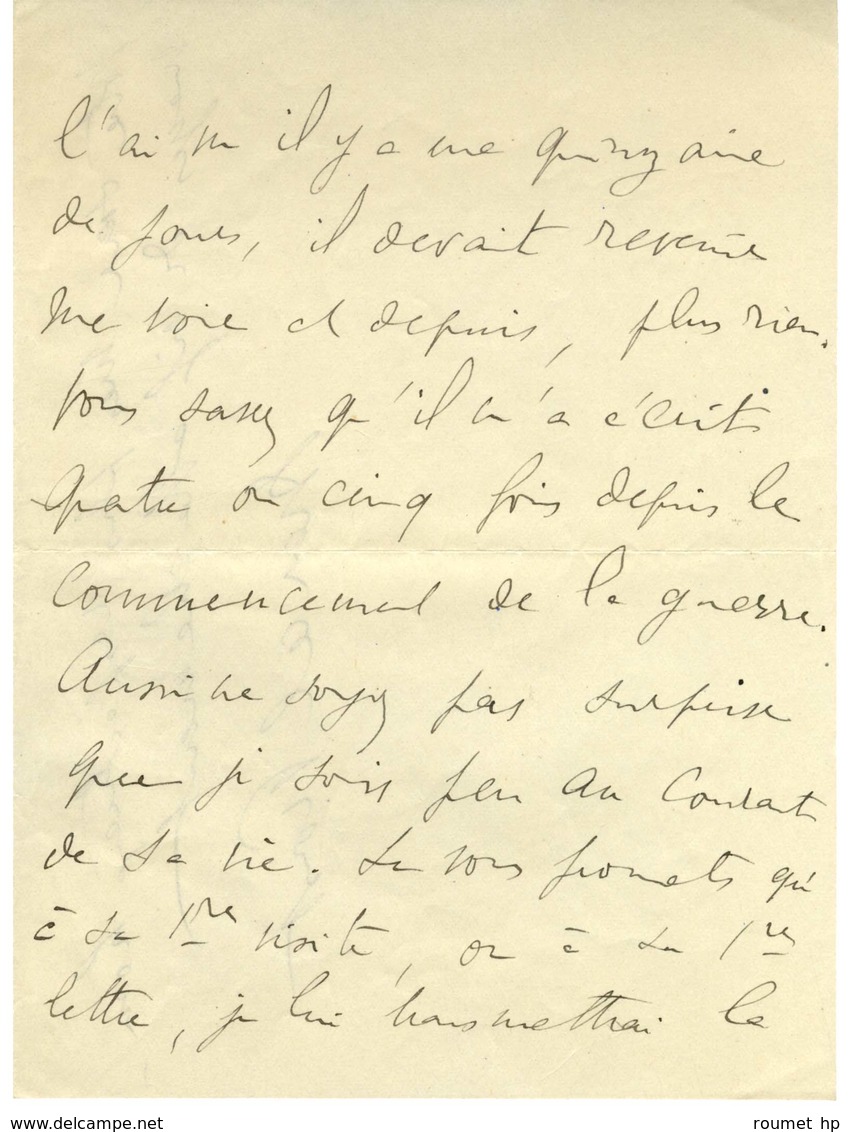 l'ai vu il y a une quinzaine
de jours, il devait revenir
me voir et depuis, plus rien.
Vous savez qu'il m'a écrit
quatre ou cinq fois depuis le
commencement de la guerre.
Aussi ne soyez pas surprise
que je sois peu au courant
de sa vie. Je vous promets qu'
à sa 1re visite, ou à sa 1re
lettre, je lui transmettrai la
www.delcampe.net
roumet hp